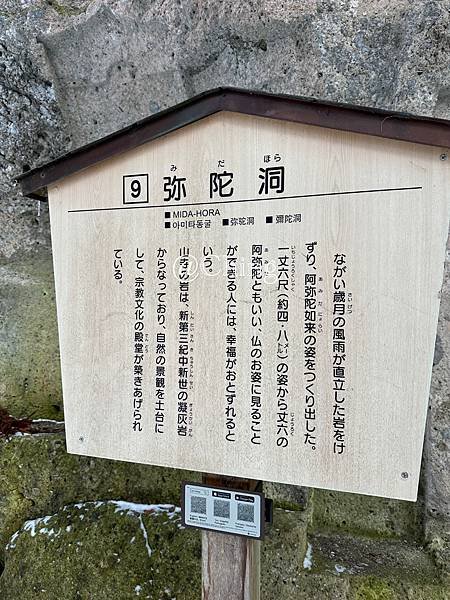 9 弥陀洞
みだほら
■ MIDA-HORA
■ 아미타동굴 ■弥陀洞 ■彌陀洞
ながい歳月の風雨が直立した岩をけ
ずり、阿弥陀如来の姿をつくり出した。
一丈六尺（約四・八㍍）の姿から丈六の
阿弥陀ともいい、仏のお姿に見ること
ができる人には、幸福がおとずれると
いう。
山寺の岩は、新第三紀中新世の凝灰岩
からなっており、自然の景観を土台に
して、宗教文化の殿堂が築きあげられ
ている。